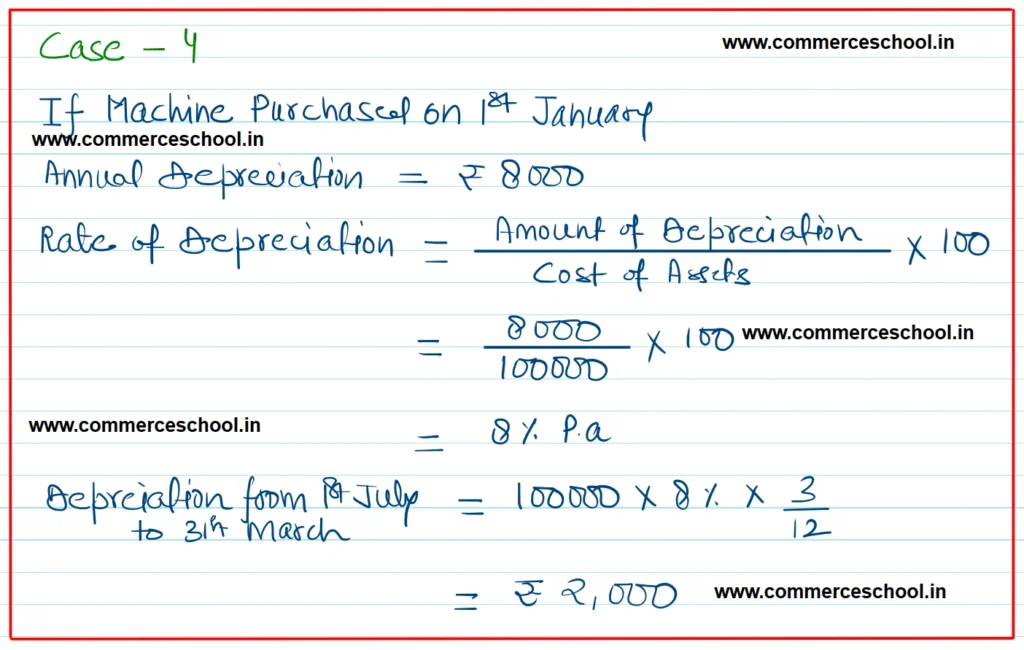 Case - 4
www.commerceschool.in
If Machine Purchased on 1st January
www.commerceschool.in
Annual Depreciation = ₹ 8000
Rate of Depreciation = Amount of Depreciation / Cost of Assets × 100
= 8000 / 100000 × 100
www.commerceschool.in
www.commerceschool.in
= 8% P.a
Depreciation from 1st July to 31th March = 100000 × 8% × 3 / 12
= ₹ 2,000
www.commerceschool.in